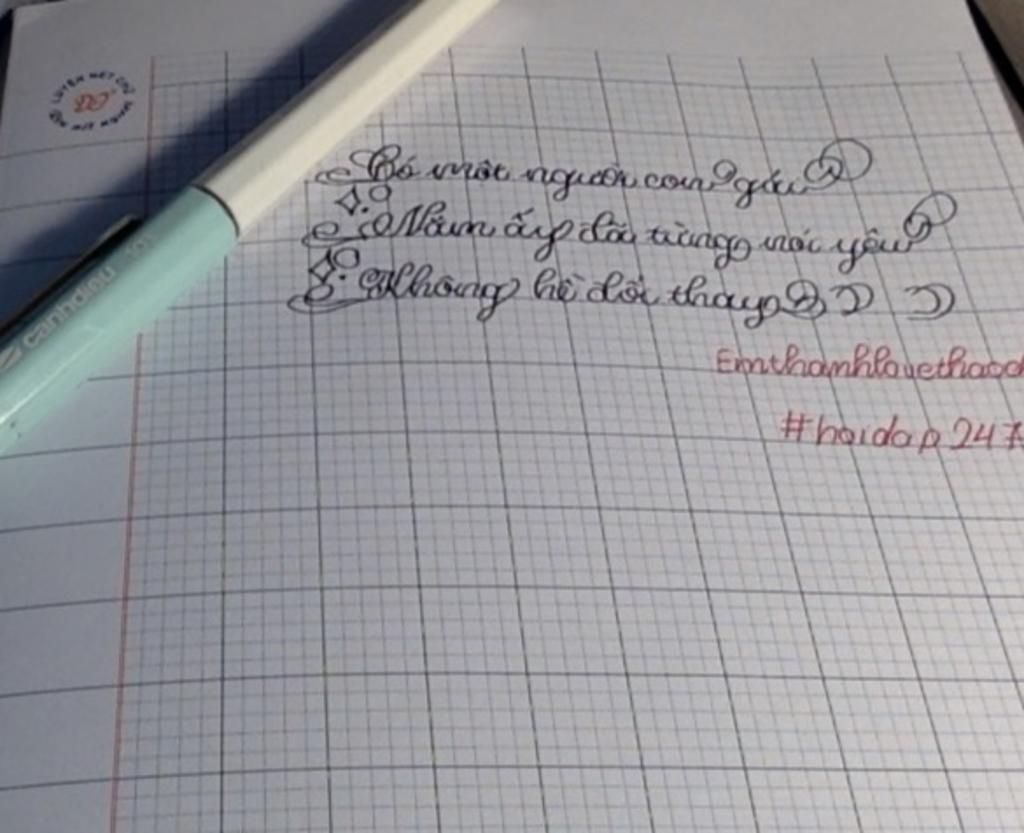 Có một người con gái
Năm ấy đã từng nói yêu
Không hề đổi thay
Emthanhlovethaoch
#hoidap247
canhdieu